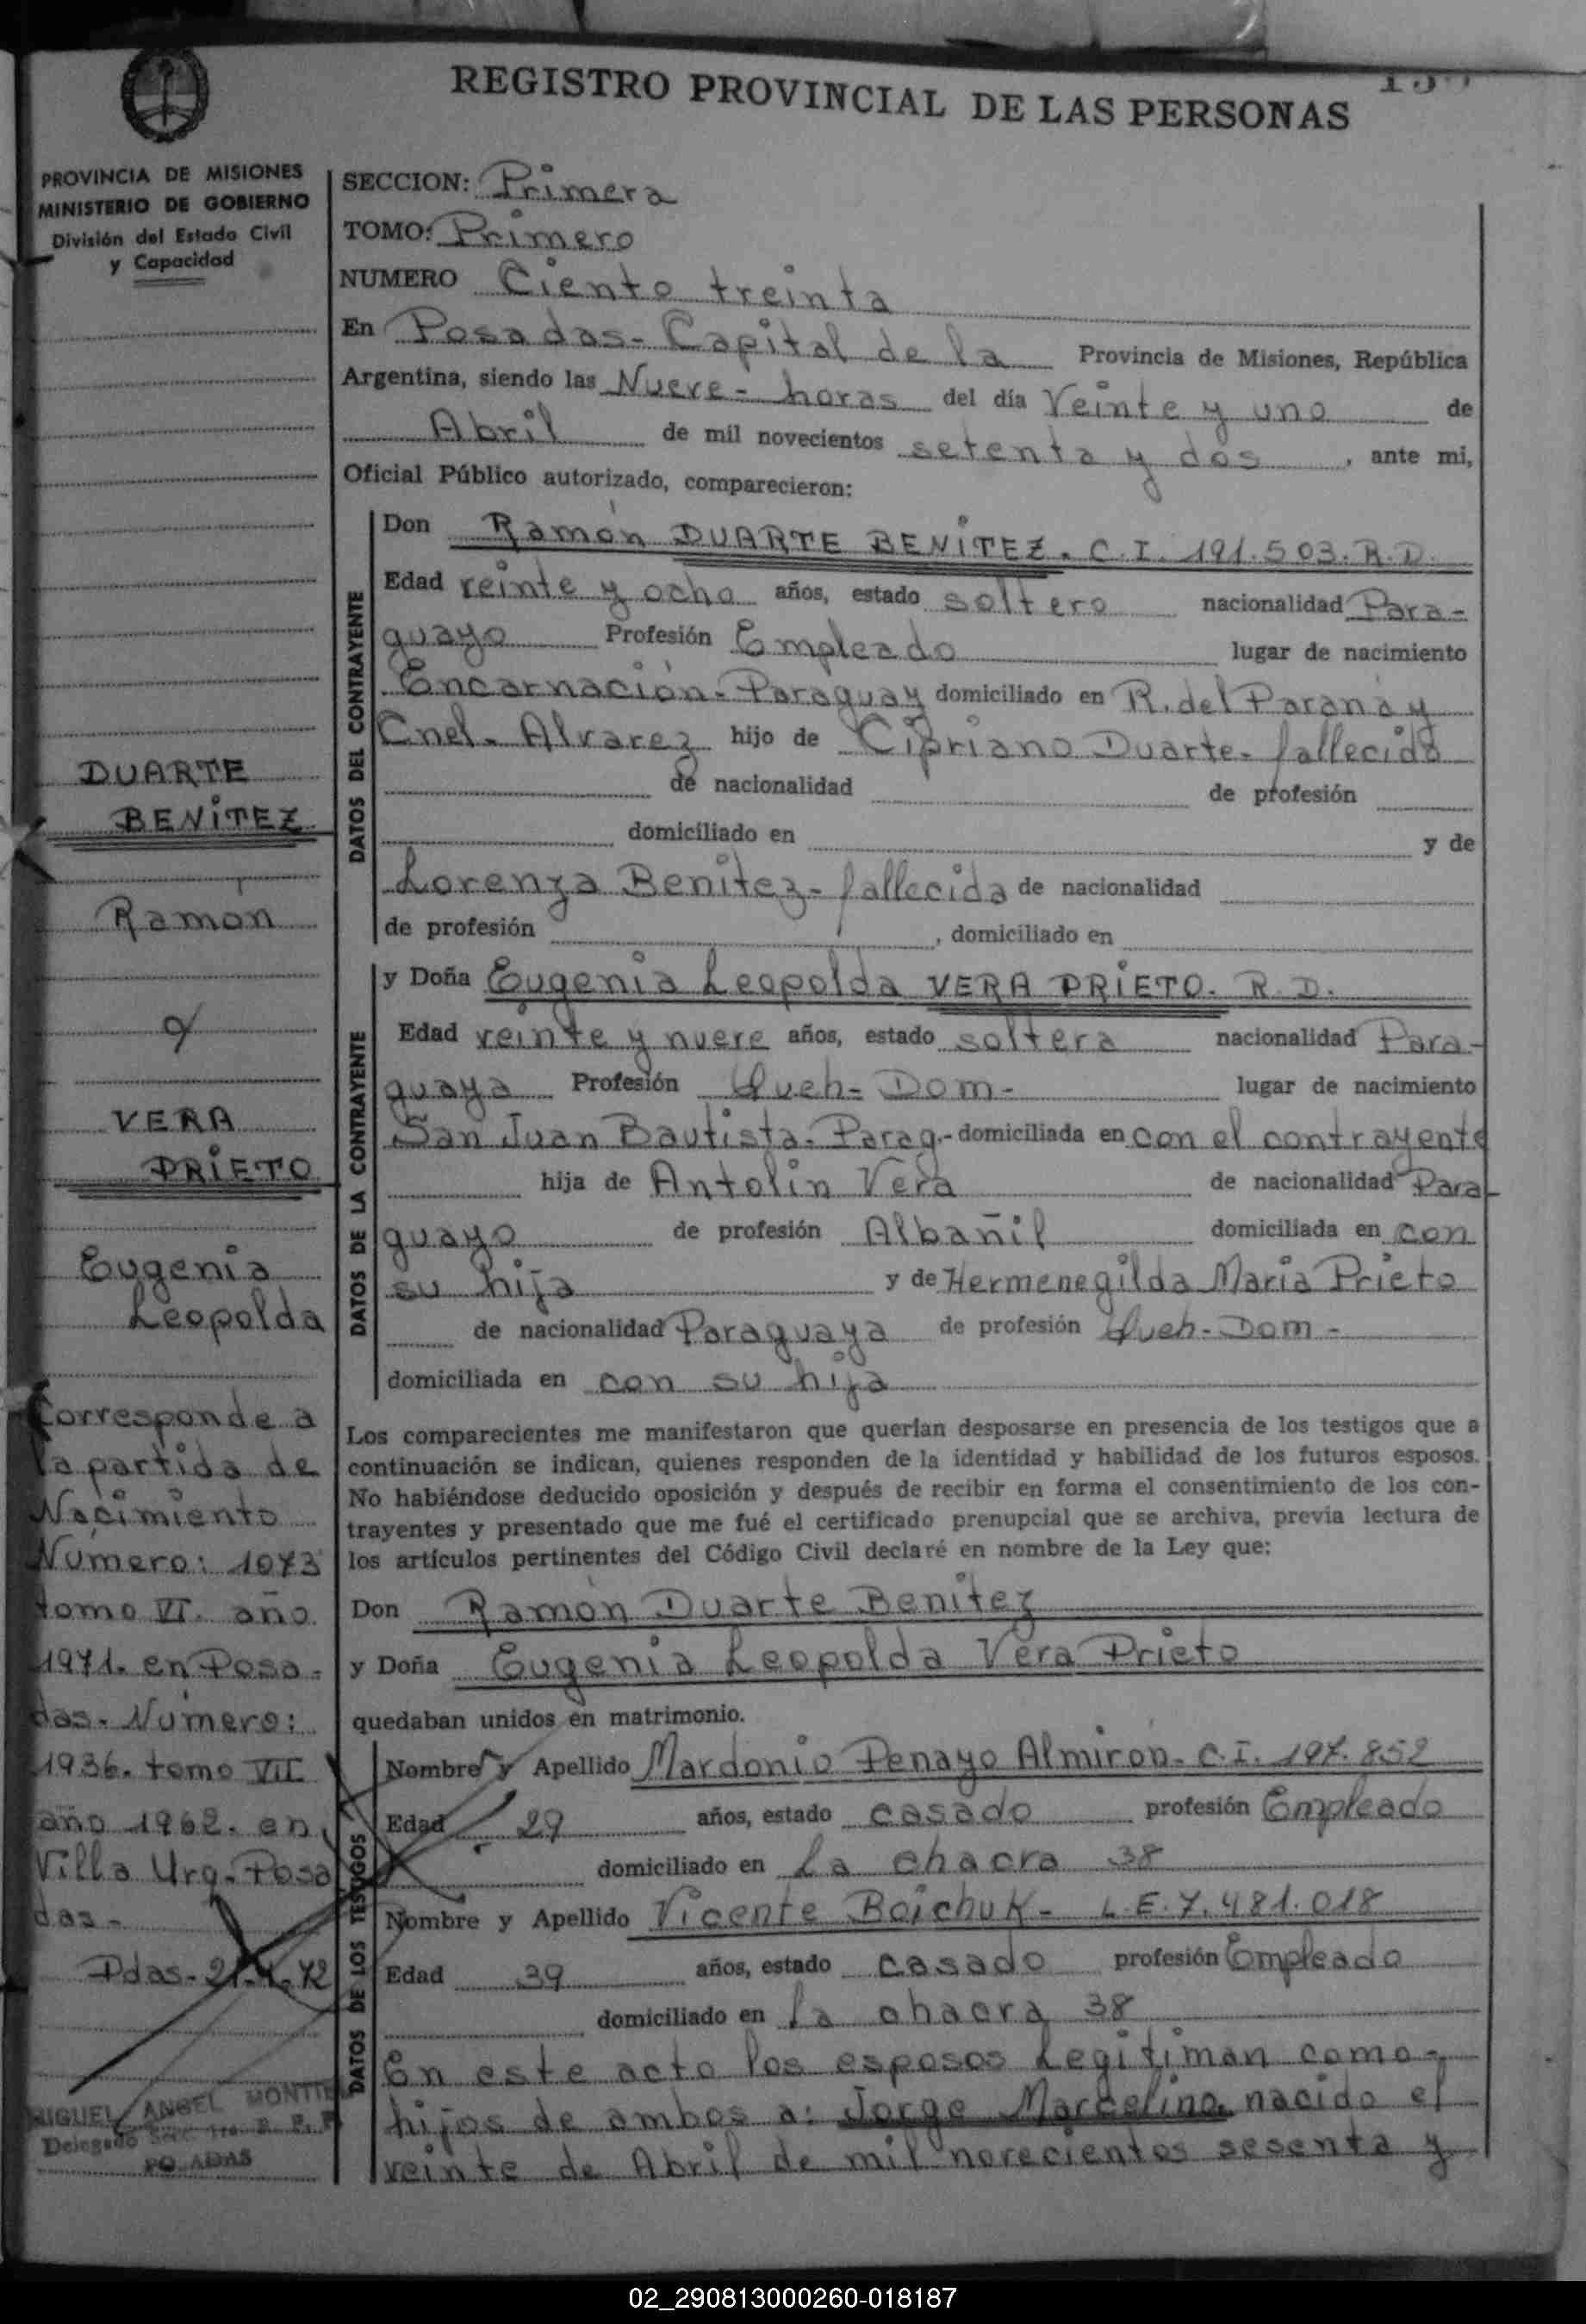 REGISTRO PROVINCIAL DE LAS PERSONAS
PROVINCIA DE MISIONES
MINISTERIO DE GOBIERNO
División del Estado Civil
y Capacidad
DUARTE
BENITEZ
Ramón
y
VERA
PRIETO
Eugenia
Leopolda
Corresponde a
la partida de
Nacimiento
Número: 1073
tomo VI. año
1971. en Posa-
das. Número:
1936. tomo VII
año 1962. en
Villa Urq. Posa
das-
Pdas. 21.4.72
MIGUEL ANGEL
Delegado
POSADAS
SECCION: Primera
TOMO: Primero
NUMERO Ciento treinta
En Posadas- Capital de la Provincia de Misiones, República
Argentina, siendo las Nueve- horas del día Veinte y uno de
Abril de mil novecientos setenta y dos, ante mi,
Oficial Público autorizado, comparecieron:
DATOS DEL CONTRAYENTE
Don Ramón DUARTE BENITEZ. C.I. 191.503. R.D.
Edad veinte y ocho años, estado soltero nacionalidad Para-
guayo Profesión Empleado lugar de nacimiento
Encarnación- Paraguay domiciliado en R. del Paraná y
Cnel. Alvarez hijo de Cipriano Duarte- fallecido
de nacionalidad de profesión
domiciliado en y de
Lorenza Benítez- fallecida de nacionalidad
de profesión , domiciliado en
DATOS DE LA CONTRAYENTE
y Doña Eugenia Leopolda VERA PRIETO. R.D.
Edad veinte y nueve años, estado soltera nacionalidad Para-
guaya Profesión Queh- Dom- lugar de nacimiento
San Juan Bautista. Parag.- domiciliada en con el contrayente
hija de Antolín Vera de nacionalidad Para-
guayo de profesión Albañil domiciliada en con
su hija y de Hermenegilda María Prieto
de nacionalidad Paraguaya de profesión Queh- Dom-
domiciliada en con su hija
Los comparecientes me manifestaron que querían desposarse en presencia de los testigos que a
continuación se indican, quienes responden de la identidad y habilidad de los futuros esposos.
No habiéndose deducido oposición y después de recibir en forma el consentimiento de los con-
trayentes y presentado que me fué el certificado prenupcial que se archiva, previa lectura de
los artículos pertinentes del Código Civil declaré en nombre de la Ley que:
Don Ramón Duarte Benítez
y Doña Eugenia Leopolda Vera Prieto
quedaban unidos en matrimonio.
DATOS DE LOS TESTIGOS
Nombre y Apellido Mardonio Penayo Almirón- C.I. 197.852
Edad 29 años, estado casado profesión Empleado
domiciliado en La chacra 38
Nombre y Apellido Vicente Boichuk- L.E. 7.481.018
Edad 39 años, estado casado profesión Empleado
domiciliado en la chacra 38
En este acto los esposos Legitiman como-
hijos de ambos a: Jorge Marcelino, nacido el
veinte de Abril de mil novecientos sesenta y
02_290813000260-018187